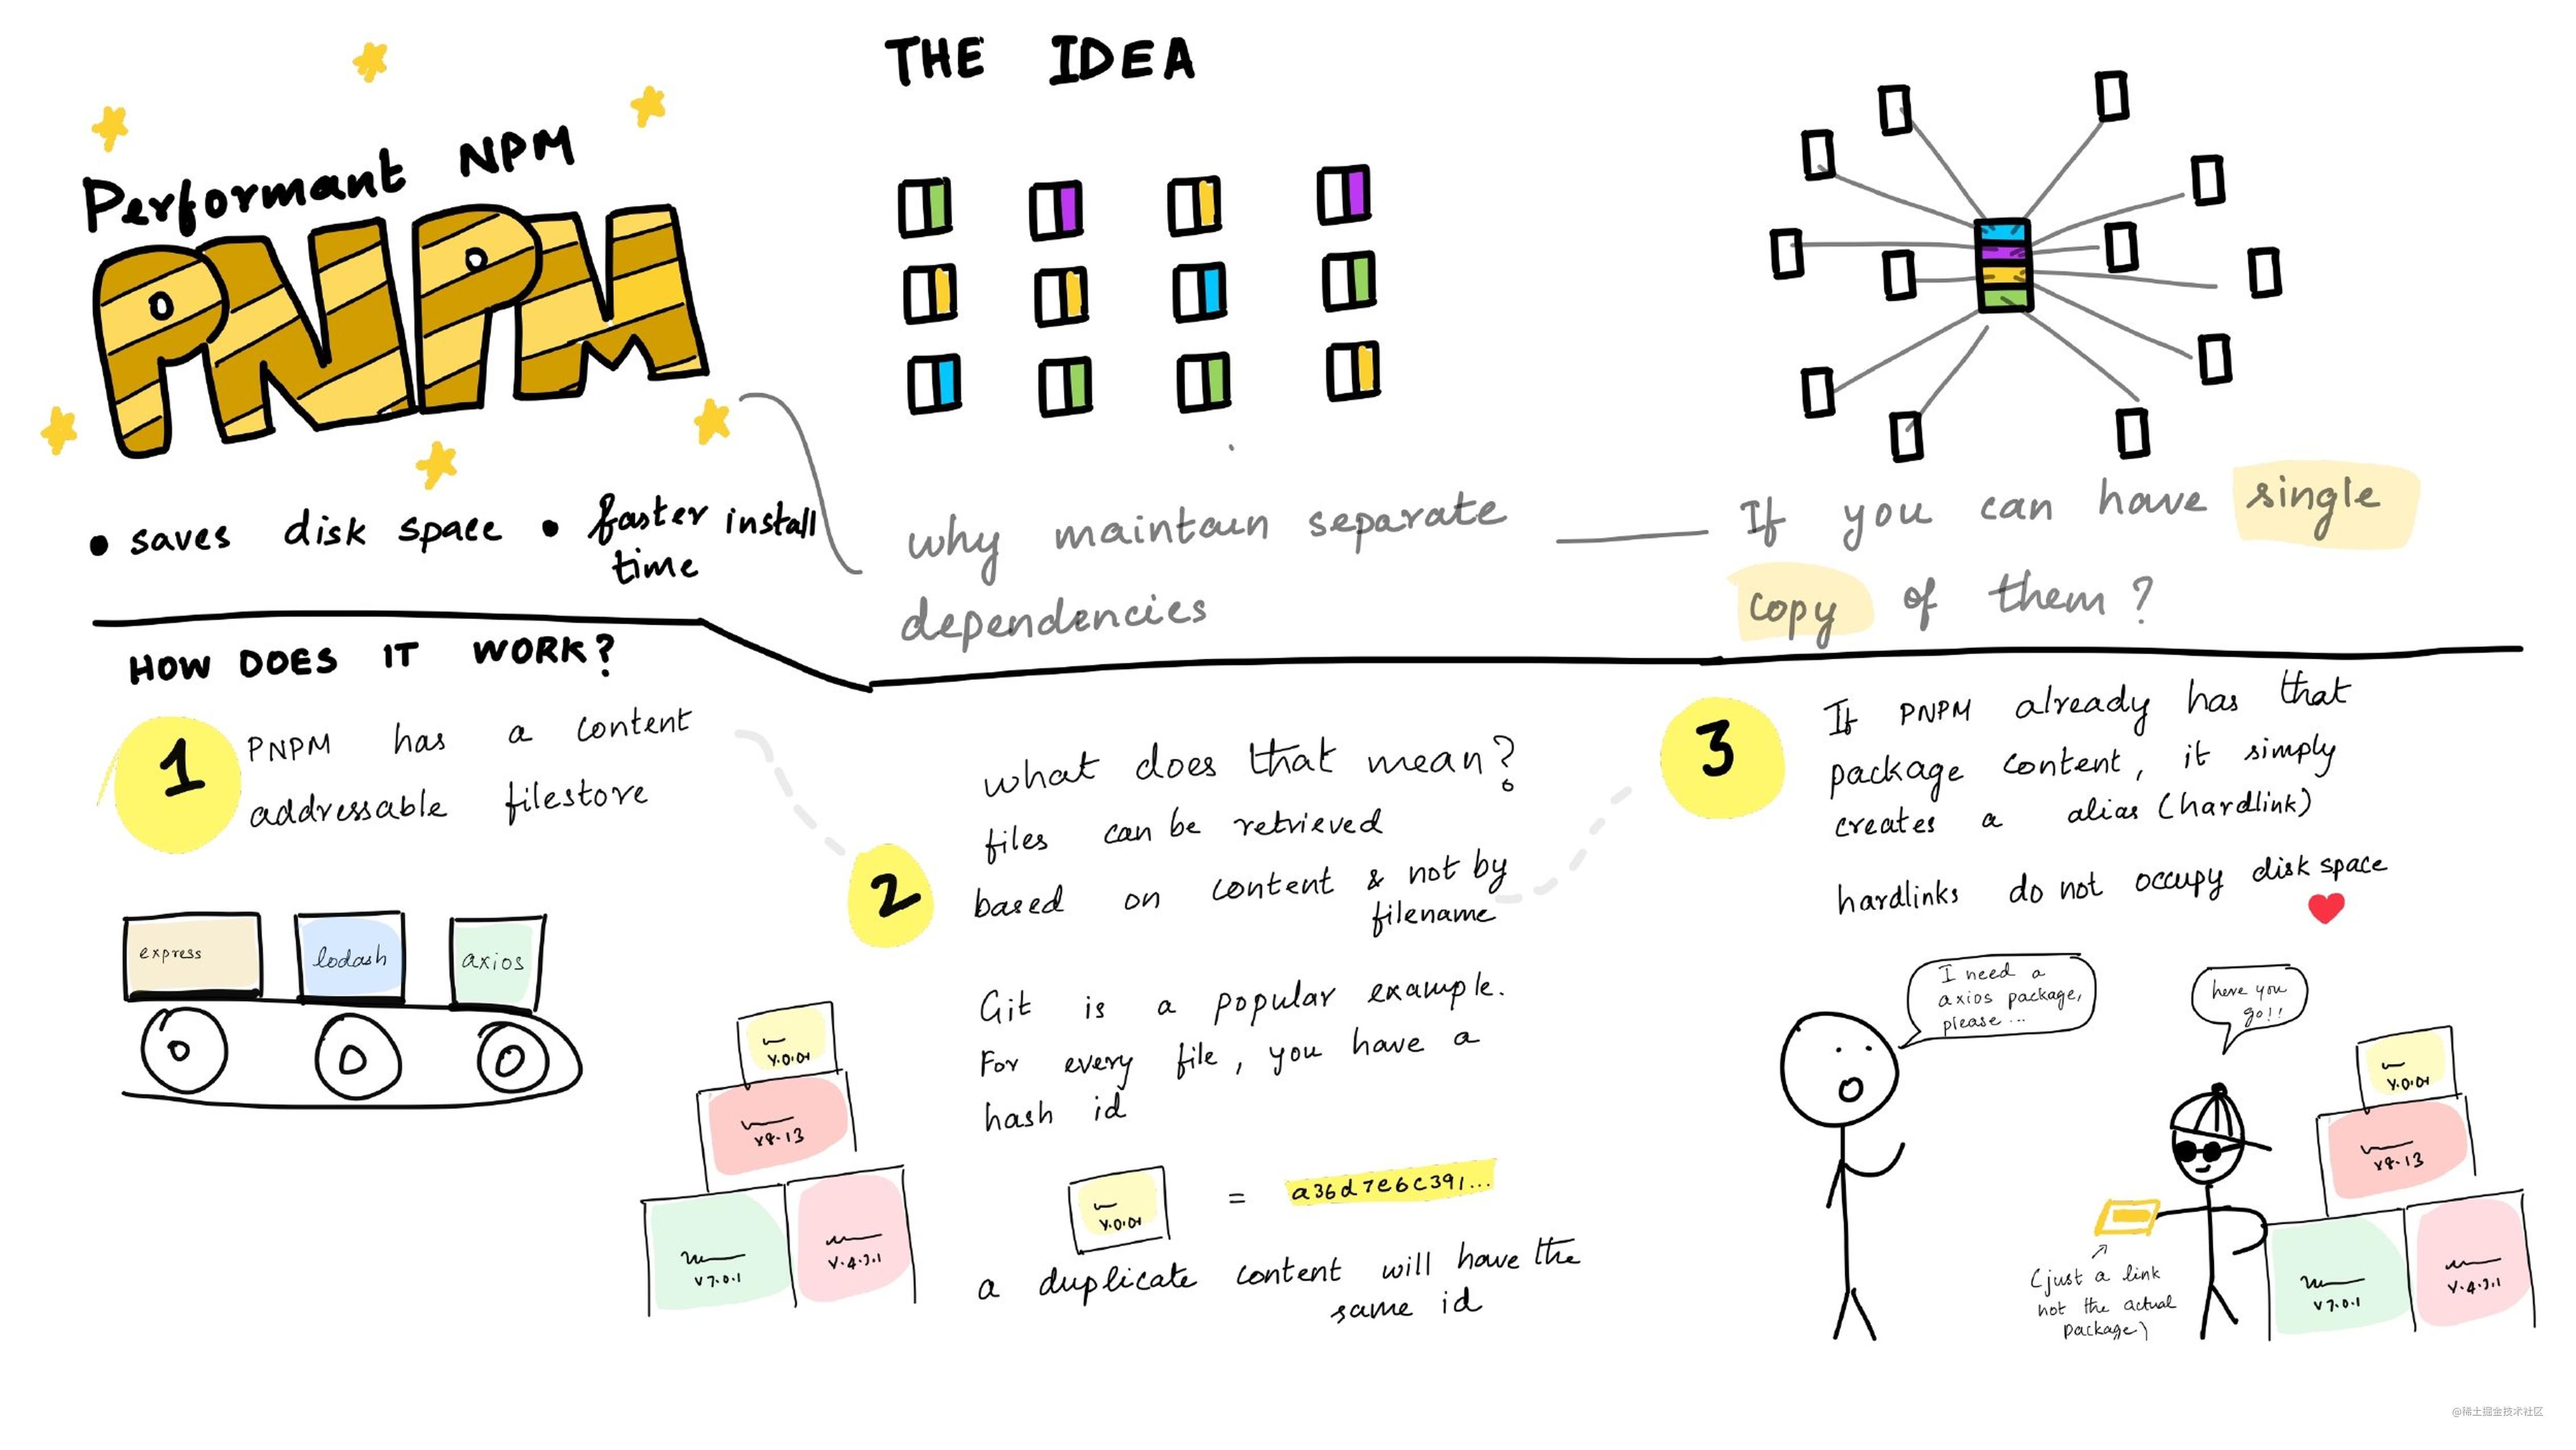 Performant NPM
PNPM
• saves disk space • faster install
time
THE IDEA
why maintain separate
dependencies
If you can have single
copy of them?
HOW DOES IT WORK?
1
PNPM has a content
addressable filestore
express
lodash
axios
v.0.01
v8.13
v7.0.1
v.4.3.1
2
what does that mean?
files can be retrieved
based on content & not by
filename
Git is a popular example.
For every file, you have a
hash id
v.0.01
=
a36d7e6c391...
a duplicate content will have the
same id
3
If PNPM already has that
package content, it simply
creates a alias (hardlink)
hardlinks do not occupy disk space
I need a
axios package,
please...
here you
go!!
(just a link
not the actual
package)
v.0.01
v8.13
v7.0.1
v.4.3.1
@稀土掘金技术社区